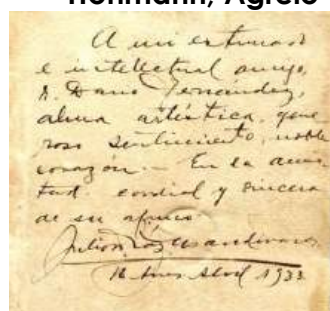 Hohmann, Agrelo
A mi estimado
e intellectual amigo,
D. Dario Fernandez,
alma artística, gene
roso sentimiento, noble
corazón.- En la amis
tad cordial y sincera
de su afmo
Julio
Abril 1933